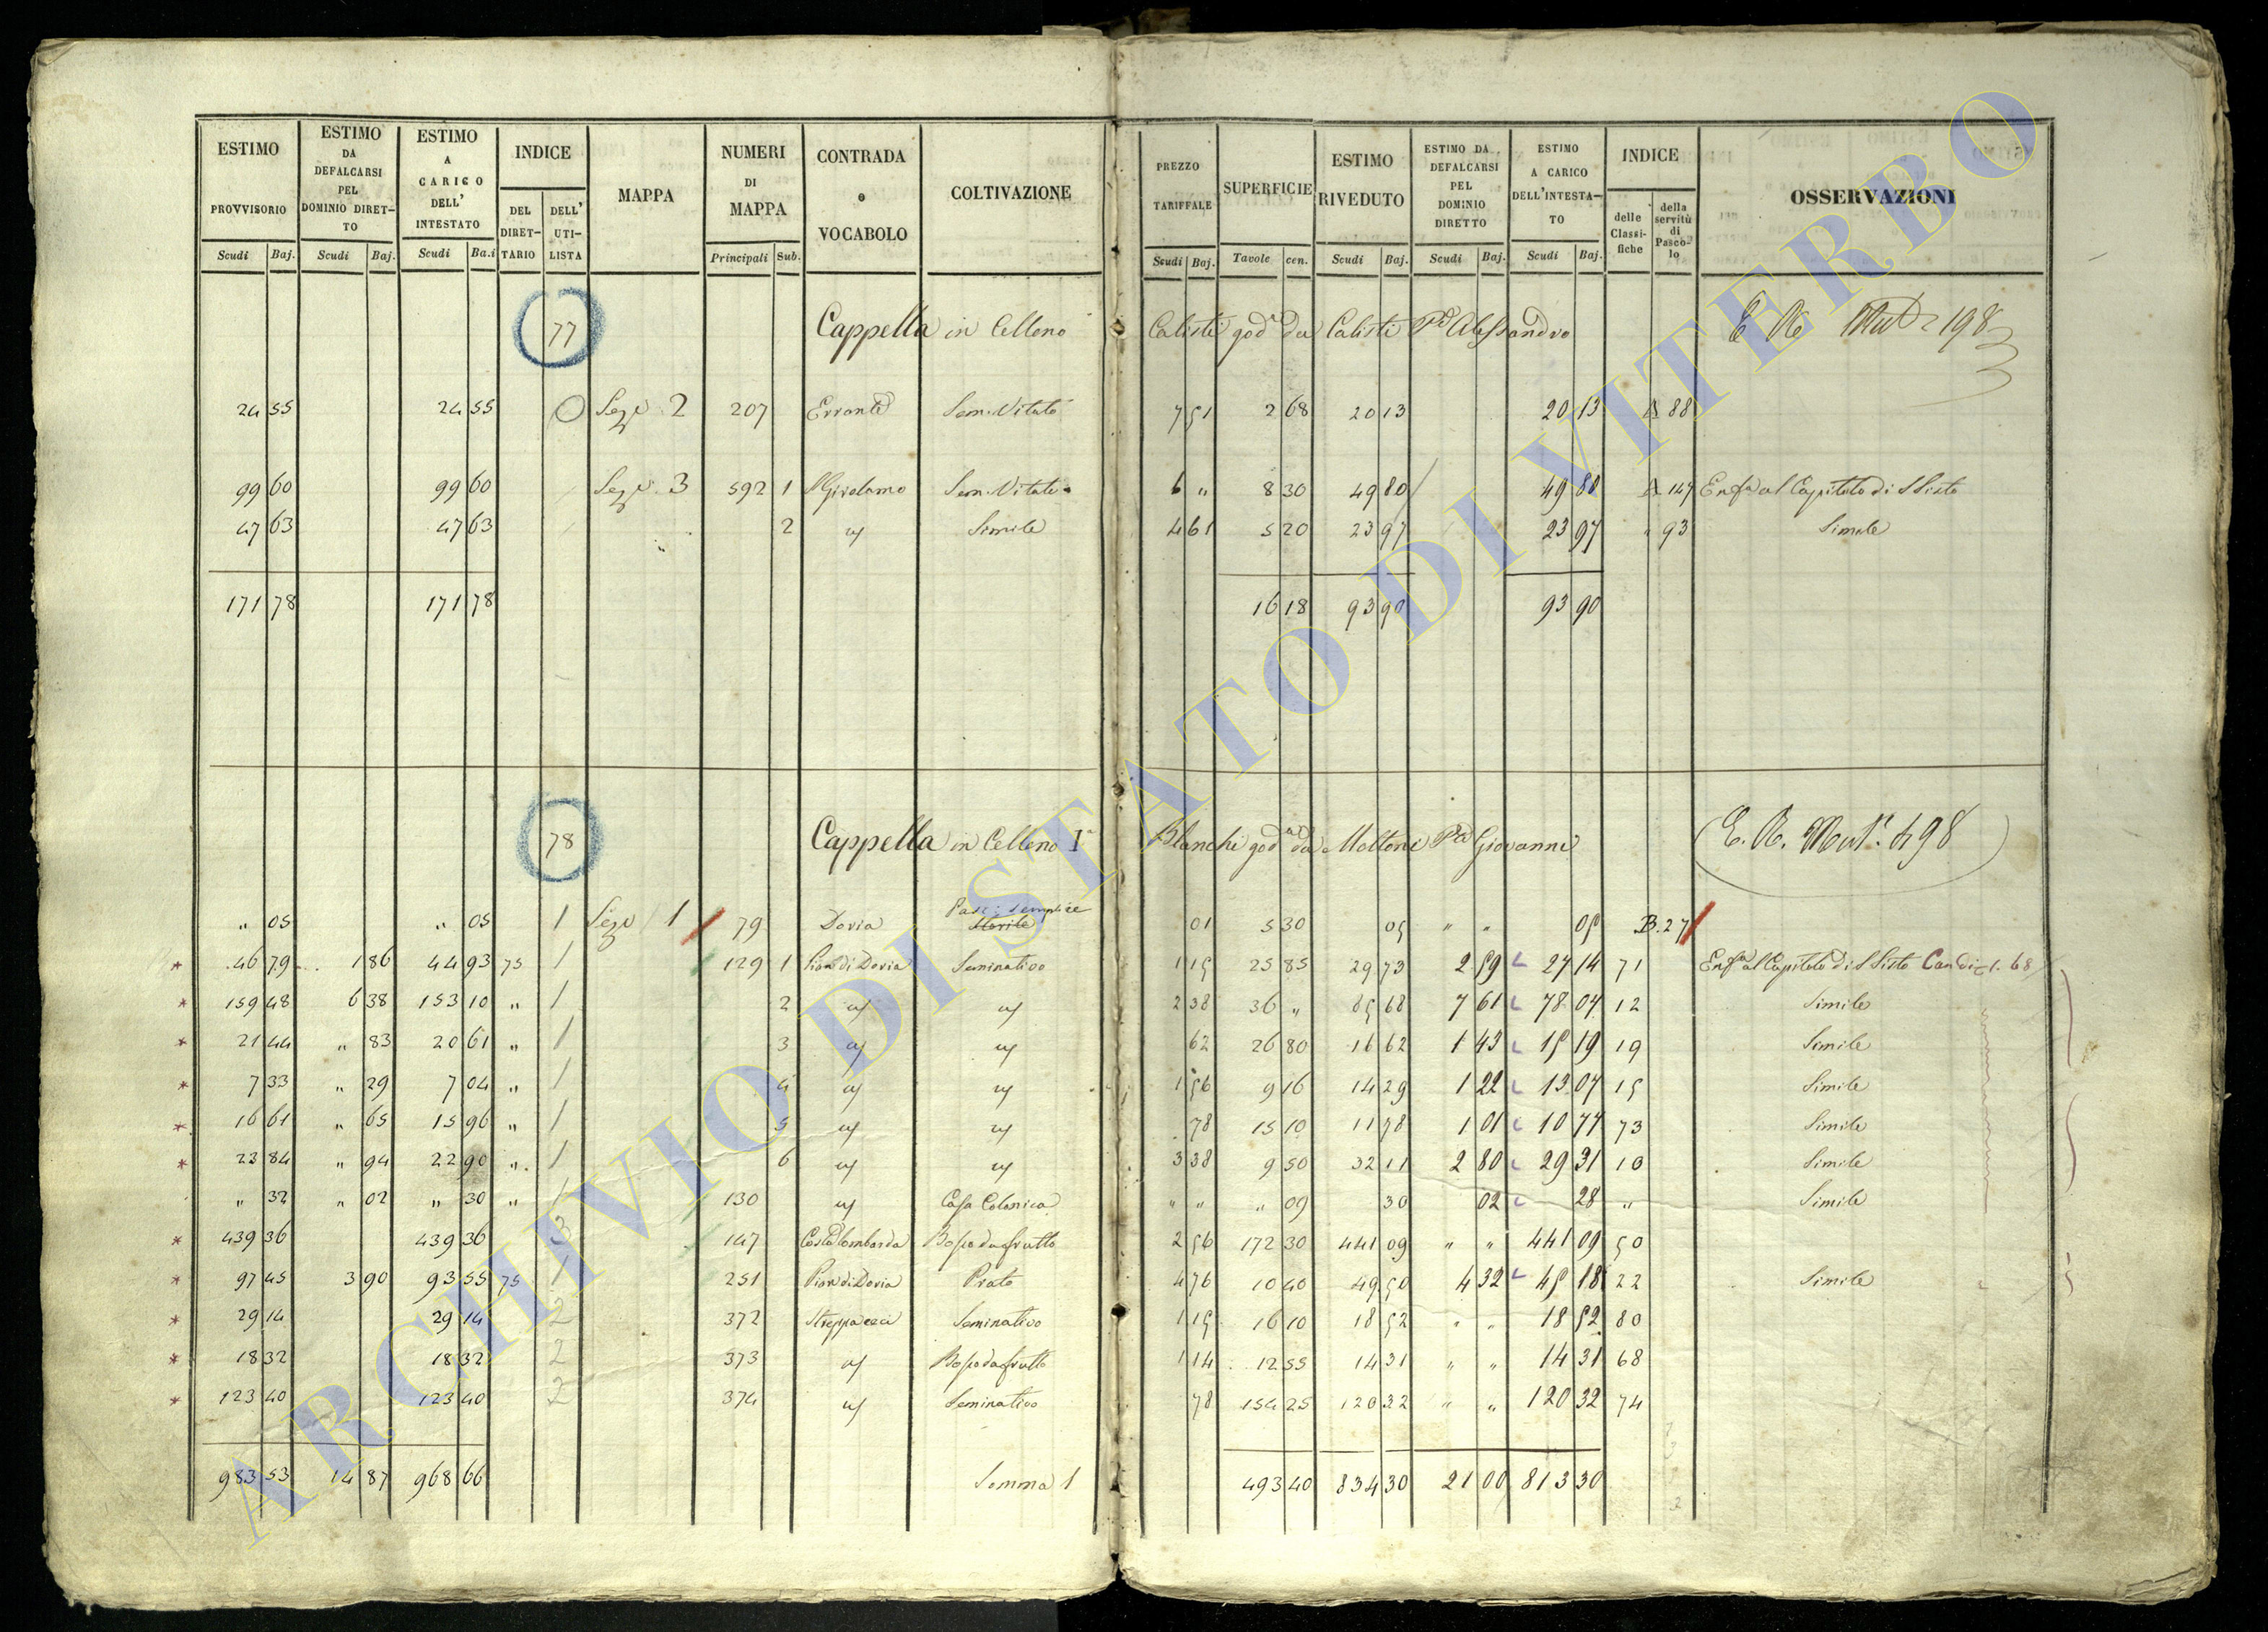 ESTIMO PROVVISORIO | ESTIMO DA DEFALCARSI PEL DOMINIO DIRETTO | ESTIMO A CARICO DELL' INTESTATO | INDICE | MAPPA | NUMERI DI MAPPA | CONTRADA o VOCABOLO | COLTIVAZIONE | PREZZO TARIFFALE | SUPERFICIE | ESTIMO RIVEDUTO | ESTIMO DA DEFALCARSI PEL DOMINIO DIRETTO | ESTIMO A CARICO DELL'INTESTATO | INDICE | OSSERVAZIONI
DEL DIRETTARIO | DELL' UTILISTA | delle Classifiche | della servitù di Pascolo
Scudi | Baj. | Scudi | Baj. | Scudi | Ba.i | Principali | Sub. | Scudi | Baj. | Tavole | cen. | Scudi | Baj. | Scudi | Baj. | Scudi | Baj.
77 Cappella in Celleno Calisti god. da Calisti Alessandro 198
24 55 | 24 55 | Sez. 2 | 207 | Errante | Sem. Vitato | 7 51 | 2 68 | 20 13 | 20 13 | A 88
99 60 | 99 60 | Sez. 3 | 592 | 1 | S Girolamo | Sem. Vitato | 6 " | 8 30 | 49 80 | 49 80 | A 147 | Enfa al Capitolo di S Sisto
47 63 | 47 63 | 2 | Simile | 4 61 | 5 20 | 23 97 | 23 97 | " 93 | Simile
171 78 | 171 78 | 16 18 | 93 90 | 93 90
78 Cappella in Celleno Ia Blanchi god. da Moltoni Giovanni E. R. Mut. 198
" 05 | " 05 | 1 | Sez. 1 | 79 | Doria | Pasc. semplice Sterile | 01 | 5 30 | 05 | " " | 05 | B. 27
* 46 79 | 1 86 | 44 93 | 75 | 1 | 129 | 1 | Pian di Doria | Seminativo | 1 15 | 25 85 | 29 73 | 2 59 | 27 14 | 71 | Enfa al Capitolo di S Sisto
* 159 48 | 6 38 | 153 10 | " | 1 | 2 | 2 38 | 36 " | 85 68 | 7 61 | 78 04 | 12 | Simile
* 21 44 | " 83 | 20 61 | " | 1 | 3 | 62 | 26 80 | 16 62 | 1 43 | 15 19 | 19 | Simile
* 7 33 | " 29 | 7 04 | " | 1 | 4 | 1 56 | 9 16 | 14 29 | 1 22 | 13 07 | 15 | Simile
* 16 61 | " 65 | 15 96 | " | 1 | 5 | 78 | 15 10 | 11 78 | 1 01 | 10 77 | 73 | Simile
* 23 84 | " 94 | 22 90 | " | 1 | 6 | 3 38 | 9 50 | 32 11 | 2 80 | 29 31 | 10 | Simile
" 32 | " 02 | " 30 | " | 1 | 130 | Casa Colonica | " " | " 09 | 30 | 02 | 28 | " | Simile
* 439 36 | 439 36 | 3 | 147 | Costa lombarda | Bosco da frutto | 2 56 | 172 30 | 441 09 | " " | 441 09 | 50
* 97 45 | 3 90 | 93 55 | 75 | 1 | 251 | Pian di Doria | Prato | 4 76 | 10 40 | 49 50 | 4 32 | 45 18 | 22 | Simile
* 29 14 | 29 14 | 2 | 372 | Seminativo | 1 15 | 16 10 | 18 52 | " " | 18 52 | 80
* 18 32 | 18 32 | 2 | 373 | Bosco da frutto | 1 14 | 12 55 | 14 31 | " " | 14 31 | 68
* 123 40 | 123 40 | 2 | 374 | Seminativo | 78 | 154 25 | 120 32 | " " | 120 32 | 74
983 53 | 14 87 | 968 66 | Somma 1 | 493 40 | 834 30 | 21 00 | 813 30
ARCHIVIO DI STATO DI VITERBO